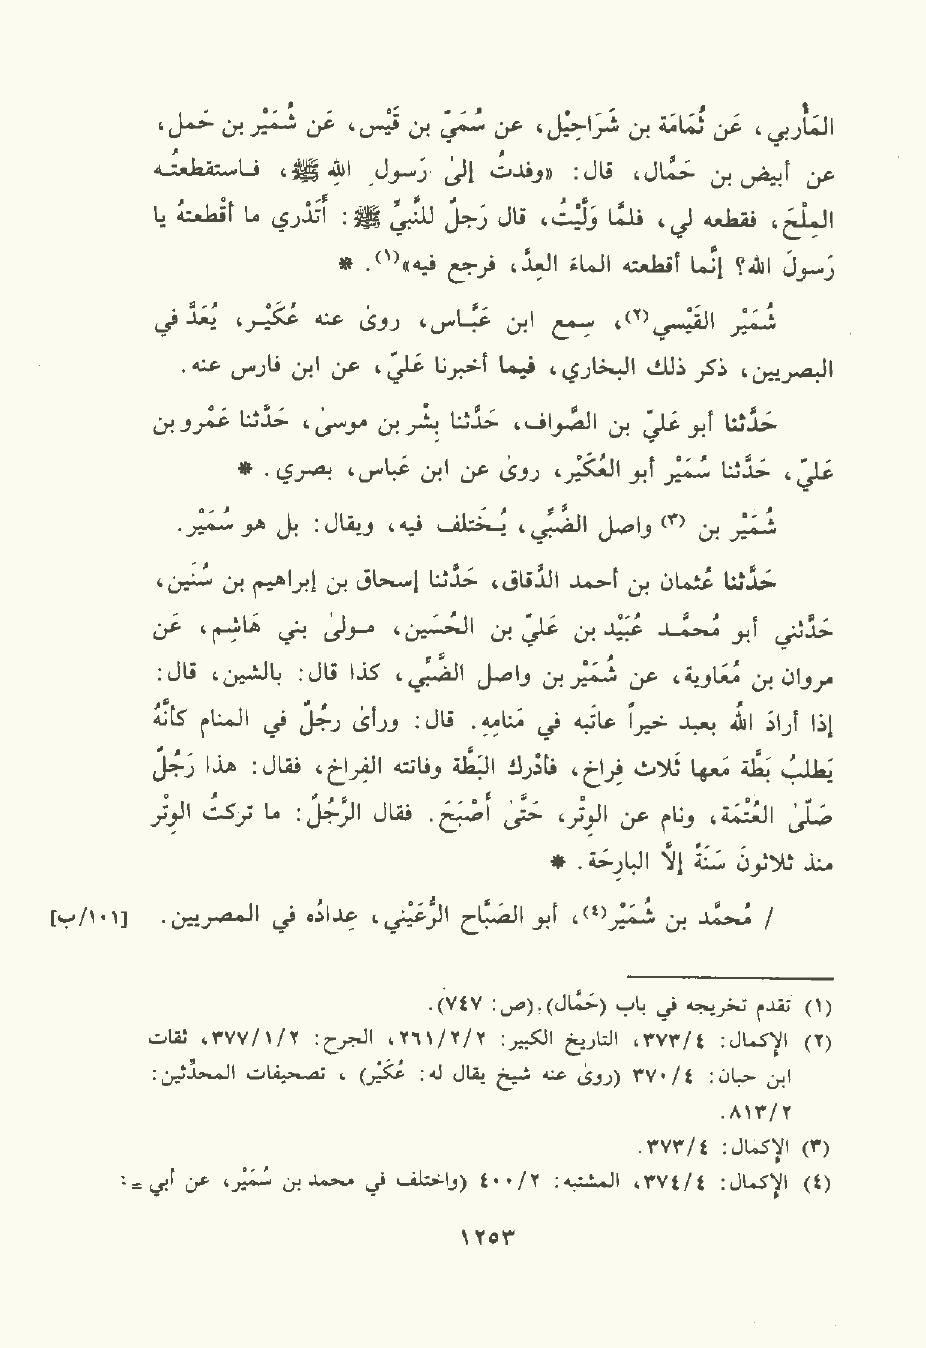 المَأْربي، عَن ثُمَامَة بن شَرَاحِيْل، عن سُمَيّ بن قَيْس، عَن شُمَيْر بن حَمل،
عن أبيض بن حَمَّال، قال: «وفدتُ إلىٰ رَسول الله ﷺ، فـاستقطعتُـه
المِلْحَ، فقطعه لي، فلمَّا وَلَّيْتُ، قال رَجلٌ للنَّبيِّ ﷺ: أتَدْري ما أقْطعتُه يا
رَسولَ الله؟ إنَّما أقطعته الماءَ العِدَّ، فرجع فيه»(١). *
شُمَيْر القَيْسي(٢)، سمع ابن عَبَّاس، روىٰ عنه عُكَيْـر، يُعَدُّ في
البصريين، ذكر ذلك البخاري، فيما أخبرنا عَليّ، عن ابن فارس عنه.
حَدَّثنا أبو عَليّ بن الصَّواف، حَدَّثنا بِشْر بن موسىٰ، حَدَّثنا عَمْرو بن
عَليّ، حَدَّثنا سُمَيْر أبو العُكَيْر، روىٰ عن ابن عَباس، بصري. *
شُمَيْر بن (٣) واصل الضَّبِّي، يُـخَتلف فيه، ويقال: بل هو سُمَيْر.
حَدَّثنا عُثمان بن أحمد الدَّقاق، حَدَّثنا إسحاق بن إبراهيم بن سُنَين،
حَدَّثني أبو مُحمَّـد عُبَيْد بن عَليّ بن الحُسَين، مـولىٰ بني هَاشِم، عَن
مروان بن مُعَاوية، عن شُمَيْر بن واصل الضَّبِّي، كذا قال: بالشين، قال:
إذا أرادَ اللهُ بعبد خيراً عاتَبه في مَنامِه. قال: ورأىٰ رَجُلٌ في المنام كأنَّهُ
يَطلبُ بَطَّة مَعها ثَلاث فِراخ، فأدْرك البَطَّة وفاتته الفِراخ، فقال: هذا رَجُلٌ
صَلَّىٰ العُتَمَة، ونام عن الوِتْر، حَتَّىٰ أصْبَحَ. فقال الرَّجُلُ: ما تركتُ الوِتْر
منذ ثلاثونَ سَنَةً إلاَّ البارِحَة. *
/ مُحمَّد بن شُمَيْر(٤)، أبو الصَّبَّاح الرُّعَيْني، عِدادُه في المصريين. [١٠١/ب]
(١) تقدم تخريجه في باب (حَمَّال). (ص: ٧٤٧).
(٢) الإكمال: ٤/٣٧٣، التاريخ الكبير: ٢/٢/٢٦١، الجرح: ٢/١/٣٧٧، ثقات
ابن حبان: ٤/٣٧٠ (روىٰ عنه شيخ يقال له: عُكَيْر) ، تصحيفات المحدِّثين:
٢/٨١٣.
(٣) الإكمال: ٤/٣٧٣.
(٤) الإكمال: ٤/٣٧٤، المشتبه: ٢/٤٠٠ (واختلف في محمد بن سُمَيْر، عن أبي =:
١٢٥٣